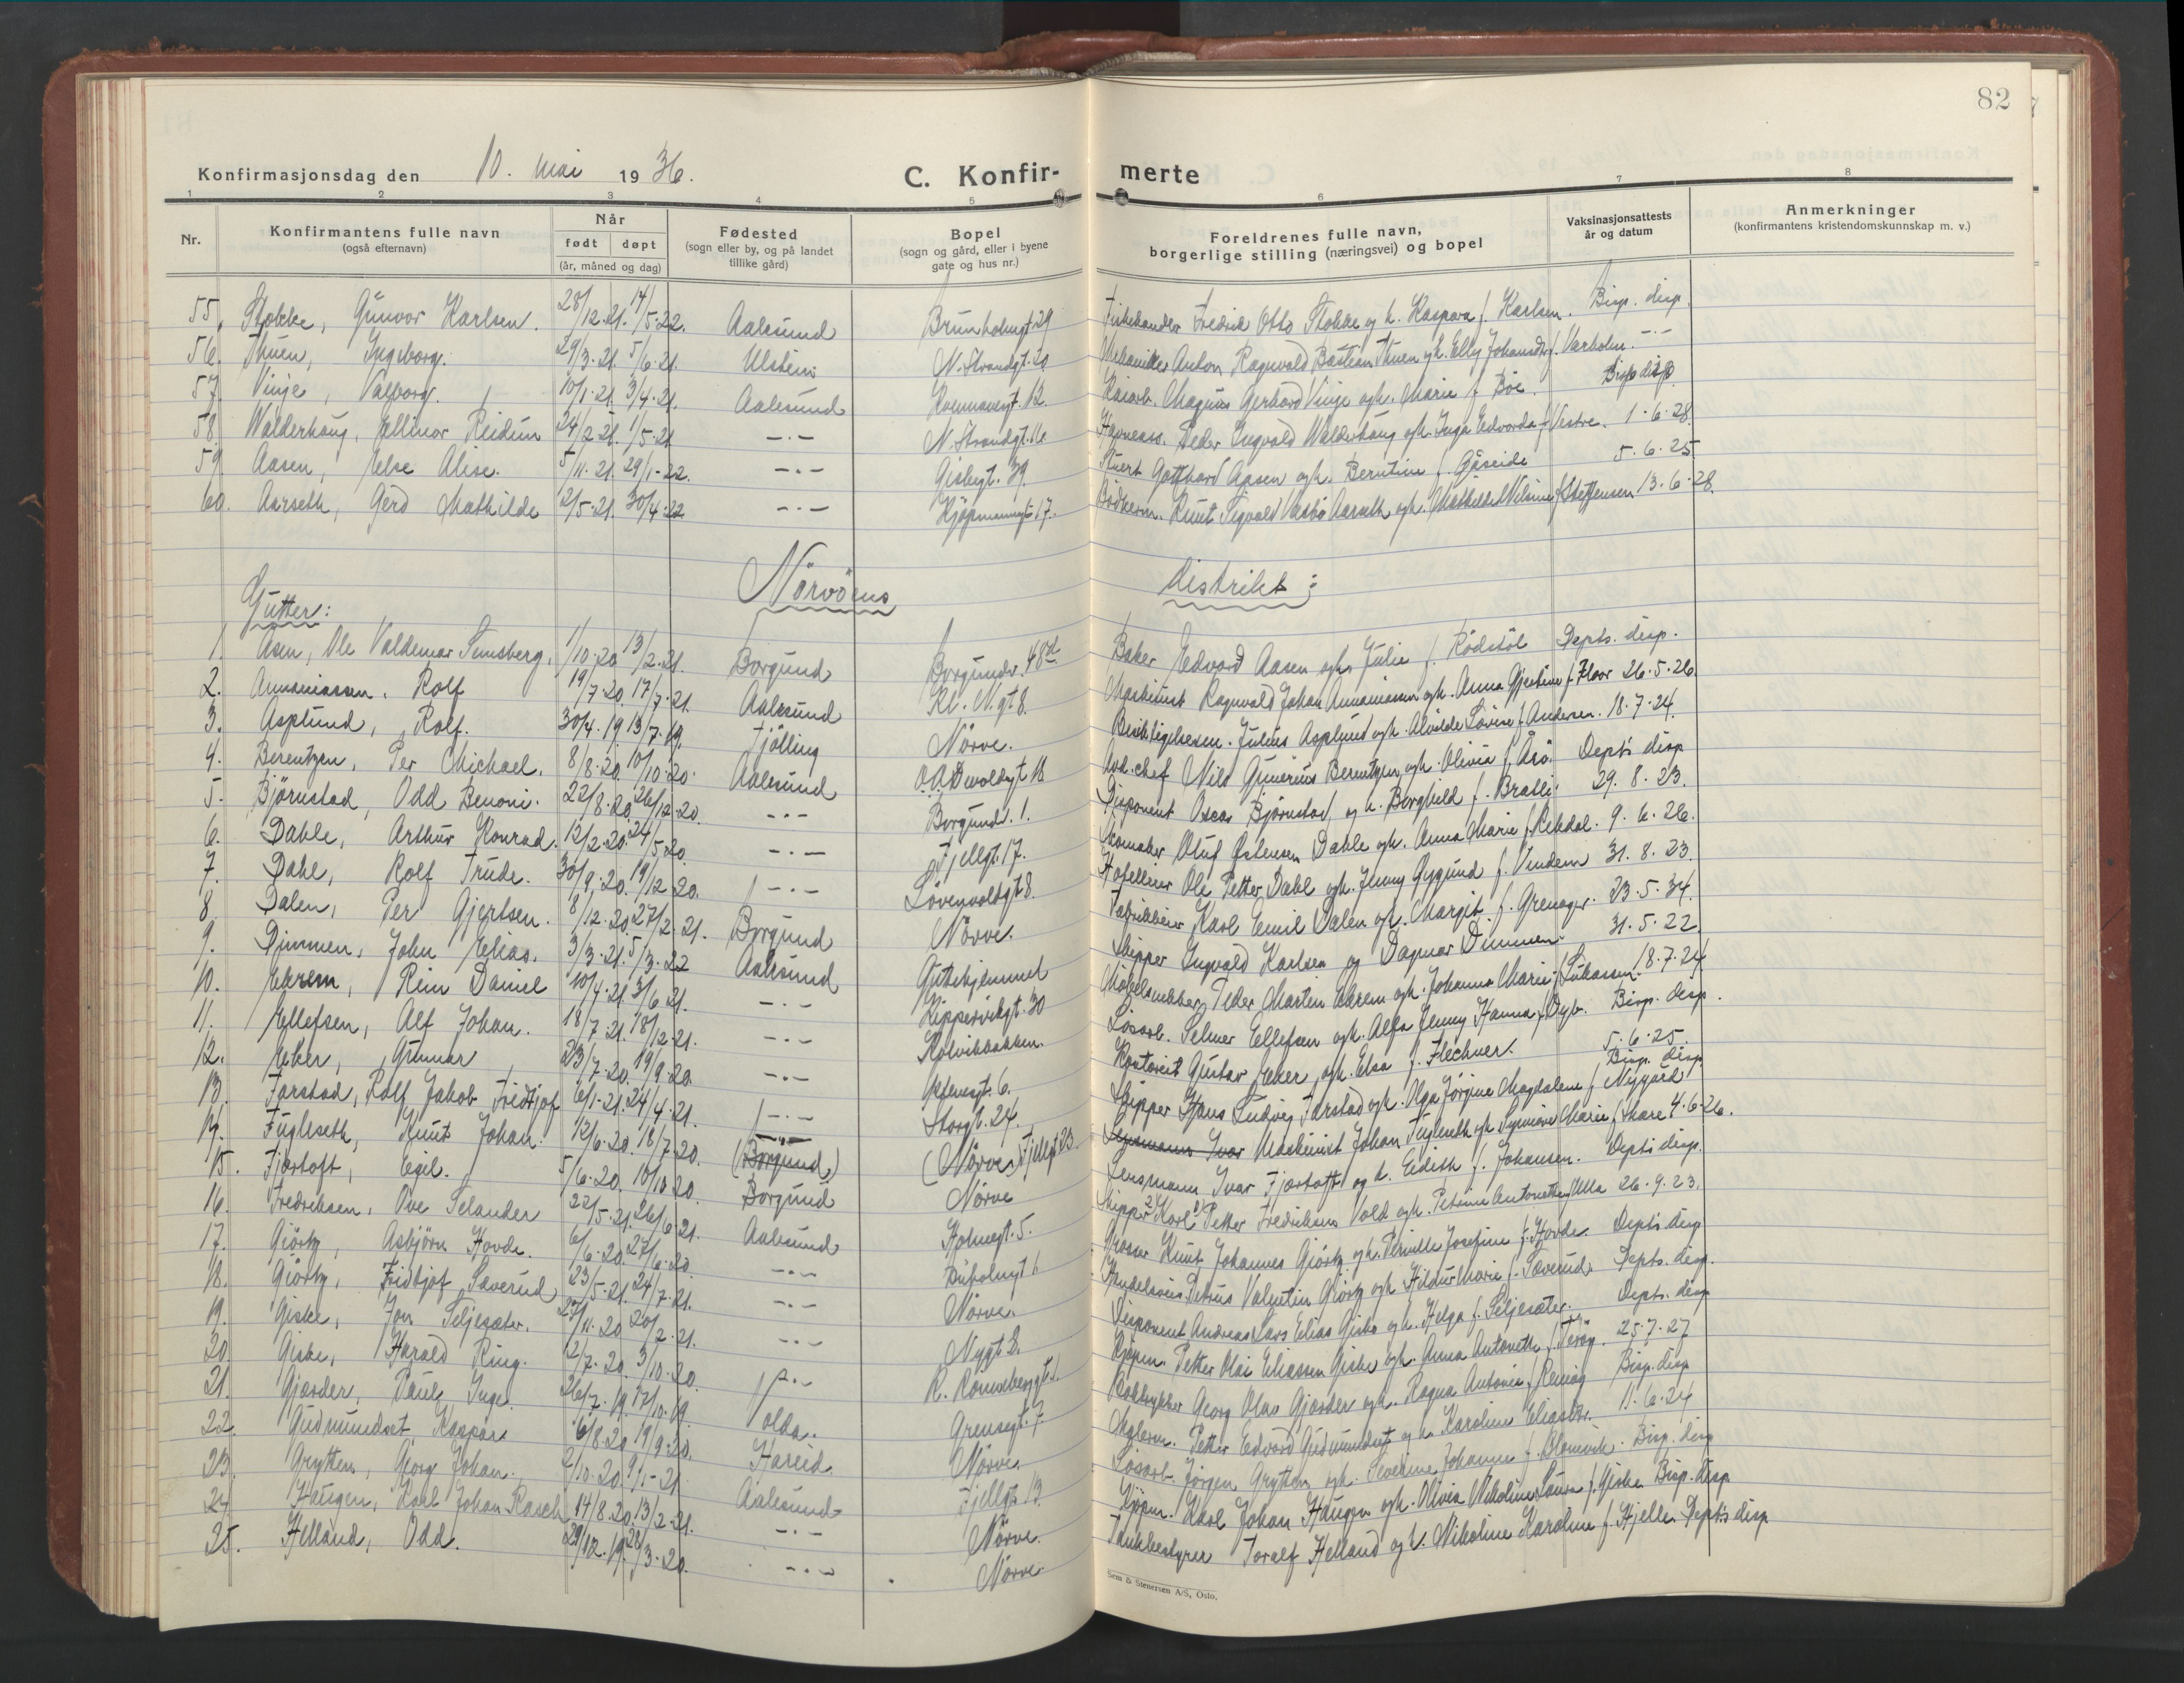 82
Konfirmasjonsdag den 10. mai 1936. C. Konfir- merte
1 2 3 4 5 6 7 8
Nr. Konfirmantens fulle navn (også efternavn) Når født døpt (år, måned og dag) Fødested (sogn eller by, og på landet tillike gård) Bopel (sogn og gård, eller i byene gate og hus nr.) Foreldrenes fulle navn, borgerlige stilling (næringsvei) og bopel Vaksinasjonsattests år og datum Anmerkninger (konfirmantens kristendomskunnskap m. v.)
55. Stokke, Gunvor Karlsen. 28/12.21. 14/5.22. Aalesund Brunholmgt. 29 Fiskehandler Fredrik Otto Stokke og h. Kaspara f. Karlsen. Bisp. disp.
56. Thuen, Ingeborg. 29/3.21. 5/6.21. Ulstein N. Strandgt. 20 Mekaniker Anton Ragnvald Bastian Thuen og h. Elly Johansdtr f. Varholm. -"-
57. Vinje, Valborg. 10/1.21. 3/4.21. Aalesund 12. Kaiarb. Magnus Gerhard Vinje og h. Marie f. Böe. Bisp. disp.
58. Walderhaug, Ellinor Reidun 24/2.21. 1/5.21 -"- N. Strandgt. 16 Havneass. Peder Ingvald Walderhaug og h. Inga Edvarda f. Vestre. 1.6.28.
59. Aasen, Else Alise. 5/11.21. 29/1.22. -"- Gisbegt. 39. Gotthard Aasen og h. Berntine f. Gåseide 5.6.25
60. Aarseth, Gerd Mathilde 12/5.21. 30/4.22 -"- Kjöpmannsgt. 17. Bödkerm. Knut Sigvald Aarseth og h. Mathilde Nilsine f. Steffensen 13.6.28.
Nörvöens distrikt:
Gutter:
1. Åsen, Ole Valdemar Tunsberg. 1/10.20 13/2.21. Borgund Borgundv. 48 Baker Edvard Aasen og h. Julie f. Rödstöl Depts. disp.
2. Annaniassen, Rolf 19/7.20. 17/7.21. Aalesund Kl. N.gt 8. Maskinist Ragnvald Johan Annaniassen og h. Anna Gjertine f. Floor 26.5.26.
3. Asplund, Rolf. 30/4.19 13/7.19. Tjölling Nörve. Julius Asplund og h. Alvilde Lovise f. Andersen. 18.7.24.
4. Berentzen, Per Michael. 8/8.20. 10/10.20. Aalesund O.A. Devoldsgt 18 Avd.chef Nils Gunerius Berentzen og h. Olivia f. Årö. Depts disp
5. Björnstad, Odd Benoni. 22/8.20 26/12.20. -"- Borgundv. 1. Disponent Oscar Björnstad og h. Borghild f. Bratli. 29.8.23.
6. Dahle, Arthur Konrad. 12/2.20. 24/5.20. -"- Fjellgt. 17. Skomaker Oluf Östensen Dahle og h. Anna Marie f. Rekdal. 9.6.26.
7. Dahl, Rolf Trude. 30/9.20. 19/12.20. -"- Lövenvoldgt 8. Hotelleier Ole Petter Dahl og h. Jenny Gygund f. Vindem 31.8.23.
8. Dalen, Per Gjertsen. 8/12.20. 27/2.21. Borgund Nörve. Fabrikkeier Karl Emil Dalen og h. Margit f. Grenager. 23.5.34.
9. Dimmen, John Elias. 3/3.21. 5/3.22 Aalesund Guttehjemmet Skipper Ingvald Karlsen og Dagmar Dimmen. 31.5.22
10. Ekrem, Rein Daniel 10/4.21. 3/6.21. -"- Kippervikgt. 30 Möbelsnekker Peder Martin Ekrem og h. Johanna Marie f. Lukassen. 18.7.24
11. Ellefsen, Alf Johan. 18/7.21. 18/12.21. -"- Kolvikbakken. Lösarb. Selmer Ellefsen og h. Alfa Jenny Hanna f. Dyb. Bisp. disp.
12. Eker, Gunnar 23/7.20. 19/9.20 -"- 6. Kontorist Gustav Eker og h. Elsa f. Flechner. 5.6.25.
13. Farstad, Rolf Jakob Fridtjof 6/1.21. 24/4.21. -"- Storgt. 24. Skipper Hans Ludvig Farstad og h. Olga Jörgine Magdalene f. Nygård Bisp. disp.
14. Fugleseth, Knut Johan. 12/6.20. 18/7.20. (Borgund) (Nörve) Fjellgt 23. Lensmann Ivar Maskinist Johan Fugleseth og h. Synnöve Marie f. Mare 4.6.26.
15. Fjörtoft, Egil. 5/6.20. 10/10.20. Borgund Nörve Lensmann Ivar Fjörtoft og h. Edith f. Johansen. Depts. disp.
16. Fredriksen, Ove Selander 22/5.21. 26/6.21. Aalesund Holmegt. 5. Skipper Karl Petter Fredriksen Vold og h. Petrine Antonette f. Ulla 26.9.23.
17. Giörtz, Asbjörn Hovde. 6/6.20. 27/6.20. -"- Buholmgt 1 Grosser Knut Johannes Giörtz og h. Pernille Josefine f. Hovde. Depts. disp
18. Giörtz, Fridtjof Sæverud 23/5.21. 24/7.21. -"- Nörve. Handelsreis. Petrus Valentin Giörtz og h. Hildur Marie f. Sæverud Depts. disp.
19. Giske, Jon Seljesæter. 27/11.20 20/2.21. -"- Nygt 2. Disponent Andreas Lars Elias Giske og h. Helga f. Seljesæter. Depts. disp
20. Giske, Harald Ring. 12/7.20. 3/10.20. -"- R. Rönnebergsgt. 1. Kjöpm. Petter Olai Eliassen Giske og h. Anna Antonette f. 25.7.27
21. Gjærder, Paul Inge. 26/7.19. 17/10.19. Volda. Grensegt. 7 Georg Olaus Gjærder og h. Ragna Antonie f. Bisp. disp
22. Gudmundset Kaspar. 6/8.20 19/9.20. Hareid. Nörve. Petter Edvard Gudmundset og h. Karoline Eliasdtr. 11.6.24
23. Grytten, Georg Johan. 2/10.20. 9/1.21. Aalesund Fjellgt. 13. Lösarb. Jörgen Grytten og h. Severine Johanne f. Bisp. disp
24. Haugen, Karl Johan Rasch 14/8.20. 13/2.21. -"- Nörve. Kjöpm. Karl Johan Haugen og h. Olivia Nikoline Laura f. Giske Bisp. disp
25. Helland, Odd. 29/12.19. 28/3.20. -"- Nörve. Toralf Helland og h. Nikoline Karoline f. Hjelle. Depts disp
Sem & Stenersen A/S, Oslo.